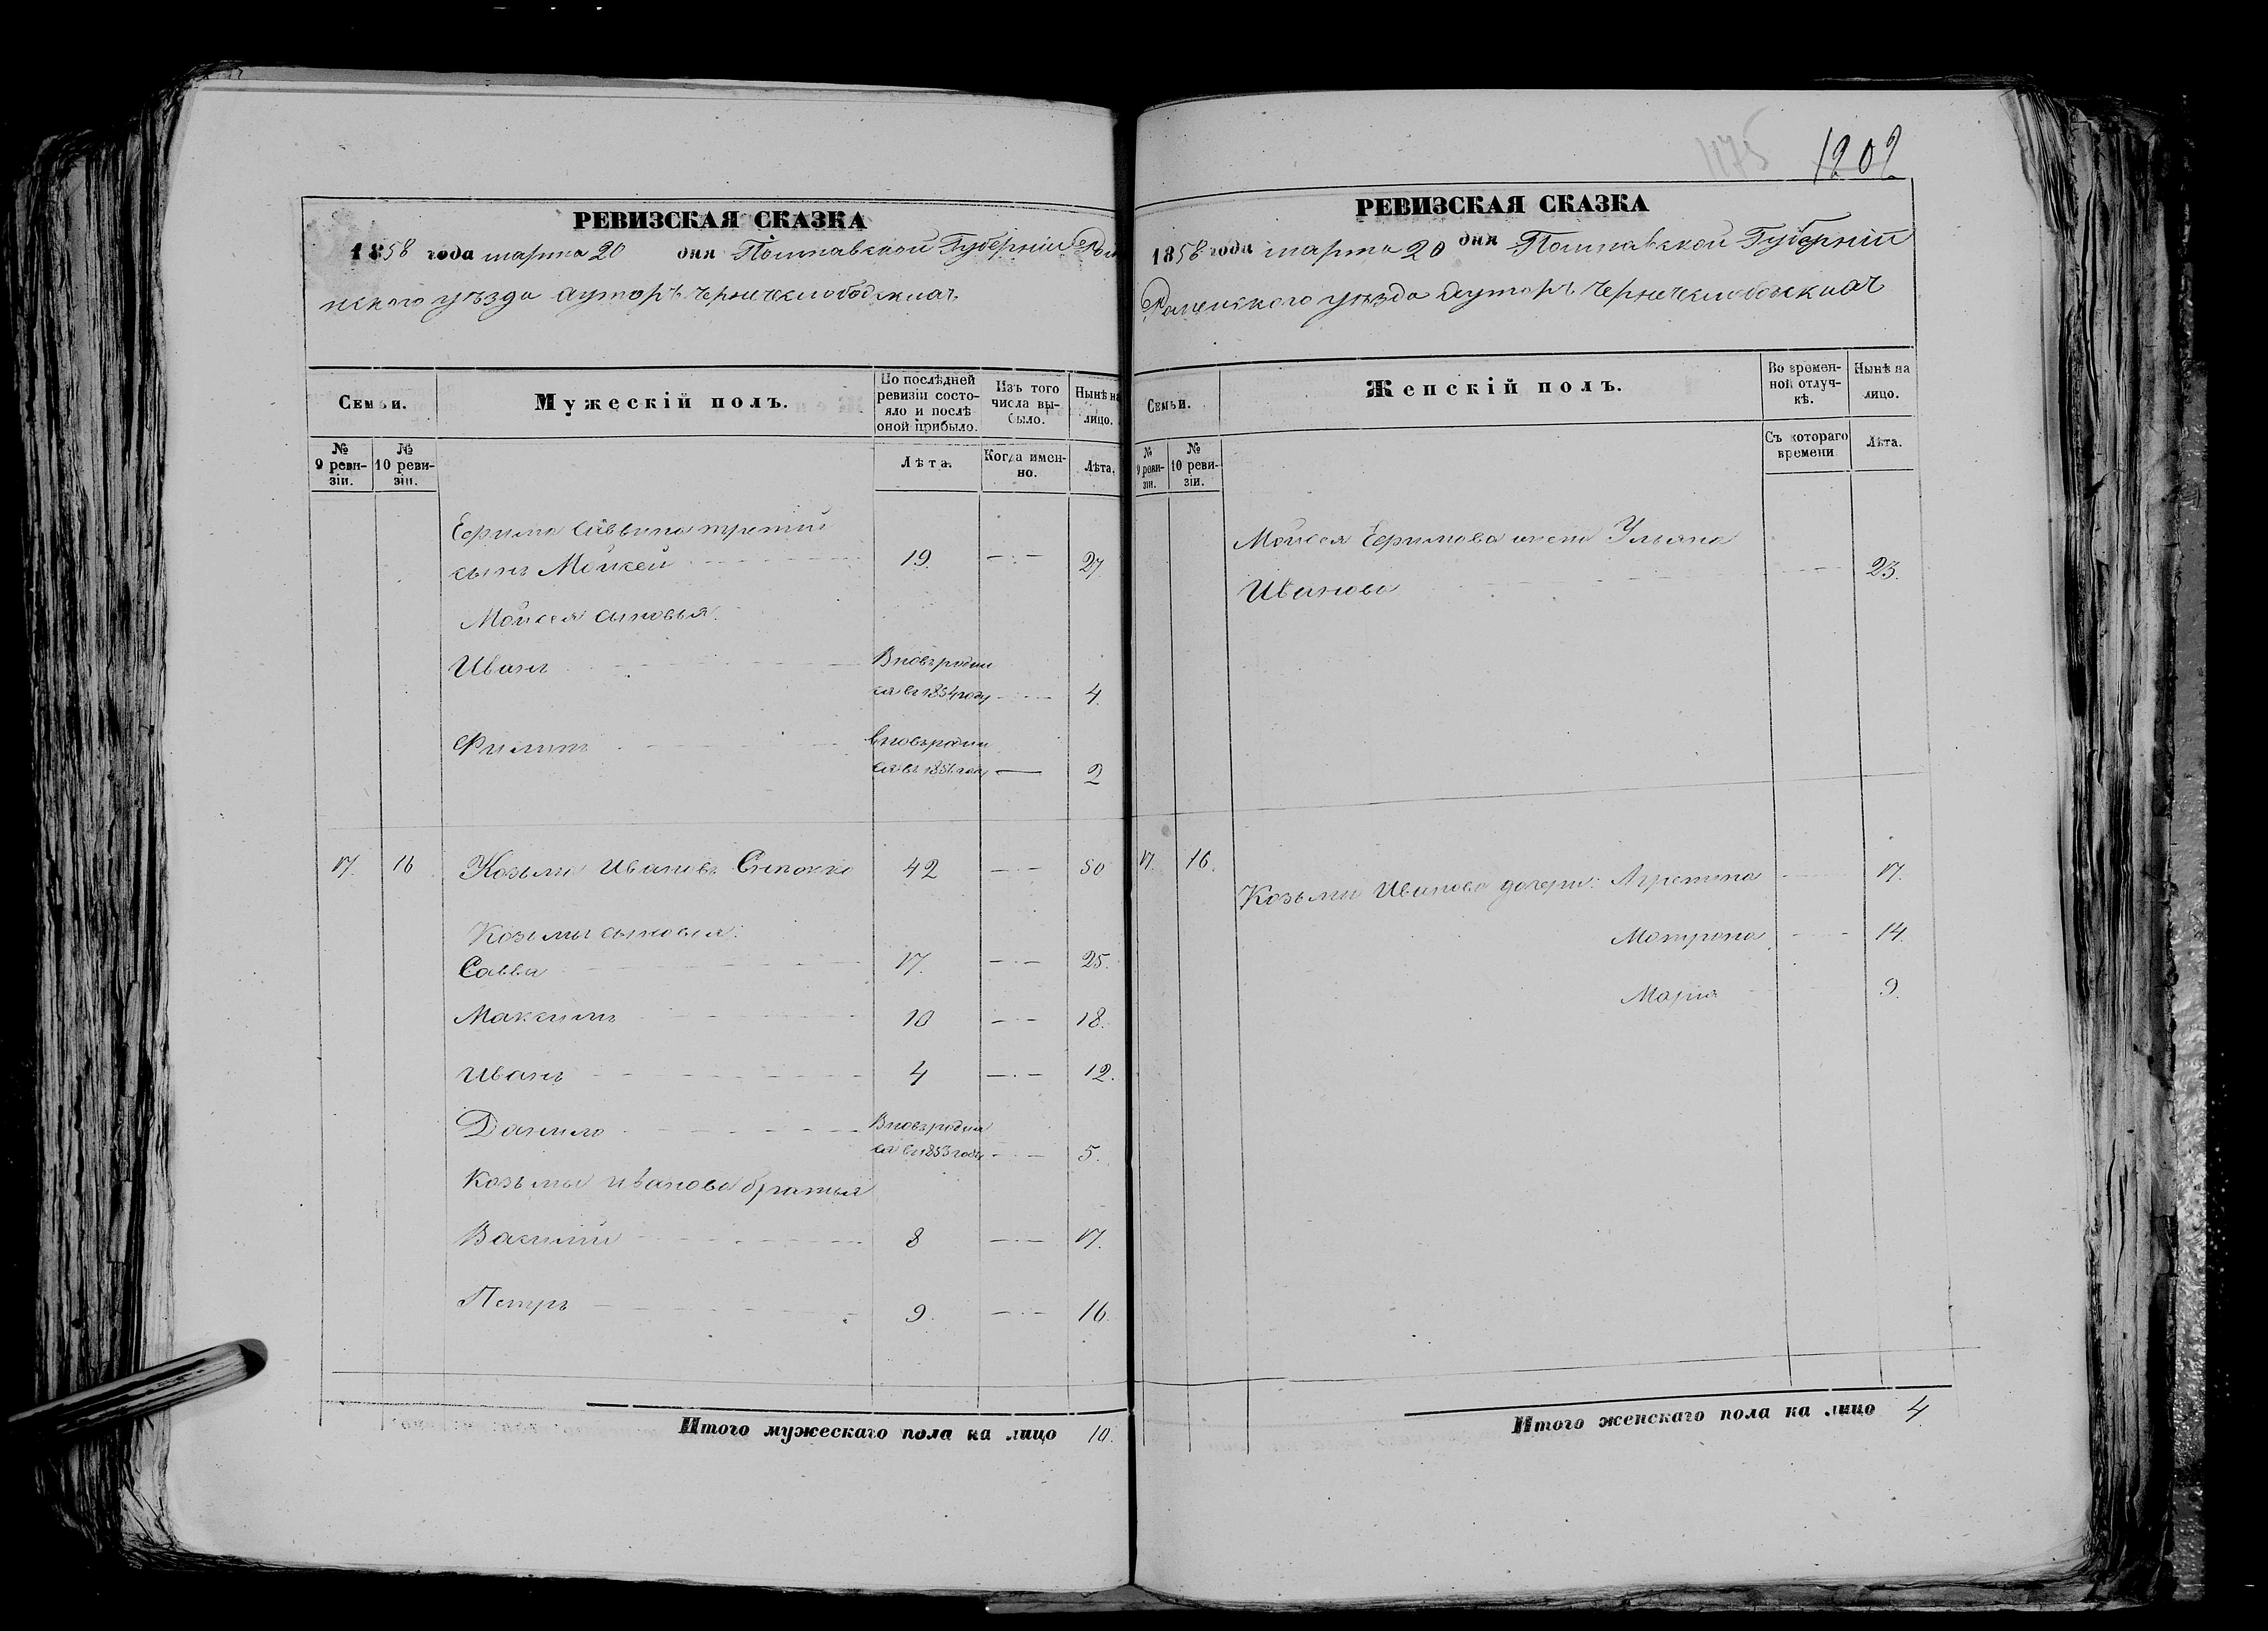 1175 1202
РЕВИЗСКАЯ СКАЗКА
1858 года марта 20 дня Полтавской Губерніи Ром
нскаго уѣзда хуторъ
Семьи.
Мужескій полъ.
По послѣдней ревизіи состояло и послѣ оной прибыло.
Изъ того числа выбыло.
Нынѣ на лицо.
№ 9 ревизіи.
№ 10 ревизіи.
Лѣта.
Когда именно.
Лѣта.
Ефима Саввина третій
сынъ Мойсей 19. 27
Мойсея сыновья:
Иванъ Вновь родил
ся въ 1854 году 4.
Филипъ вновь родил
ся въ 1856 году 2
17. 16 Козьма Ивановъ 42 50
Козьмы сыновья:
Савва 17. 25.
Максимъ 10 18.
Иванъ 4 12.
Данило Вновь родил
ся въ 1853 году 5.
Козьмы Иванова братья
Василій 8 17.
Петръ 9. 16.
Итого мужескаго пола на лицо 10.
РЕВИЗСКАЯ СКАЗКА
1858 года марта 20 дня Полтавской Губерніи
Роменскаго уѣзда хуторъ
Семьи.
Женскій полъ.
Во временной отлучкѣ.
Нынѣ на лицо.
№ 9 ревизіи.
№ 10 ревизіи.
Съ котораго времени
Лѣта.
Мойсея Ефимова жена Ульяна
Иванова 23.
17. 16. Козьмы Иванова дочери: Агрепина 17.
Матрона 14.
Марія 9.
Итого женскаго пола на лицо 4